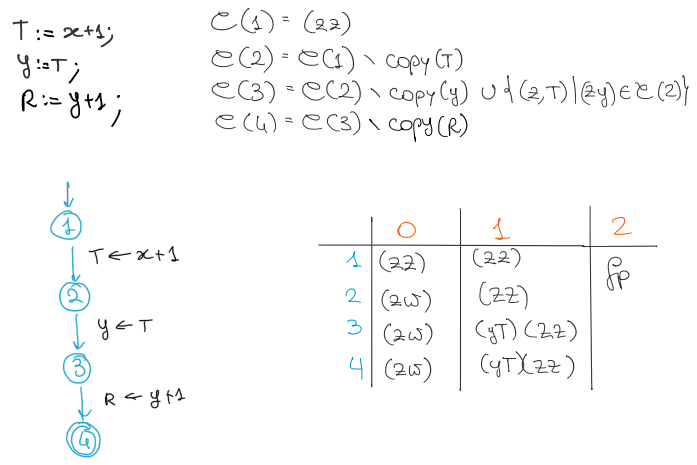 T := x+1;
y := T;
R := y+1;
C(1) = (zz)
C(2) = C(1) \ copy(T)
C(3) = C(2) \ copy(y) ∪ {(z,T) | (zy) ∈ C(2)}
C(4) = C(3) \ copy(R)
1
T ← x+1
2
y ← T
3
R ← y+1
4
0 1 2
1 (zz) (zz) fp
2 (zw) (zz)
3 (zw) (yT) (zz)
4 (zw) (yT)(zz)